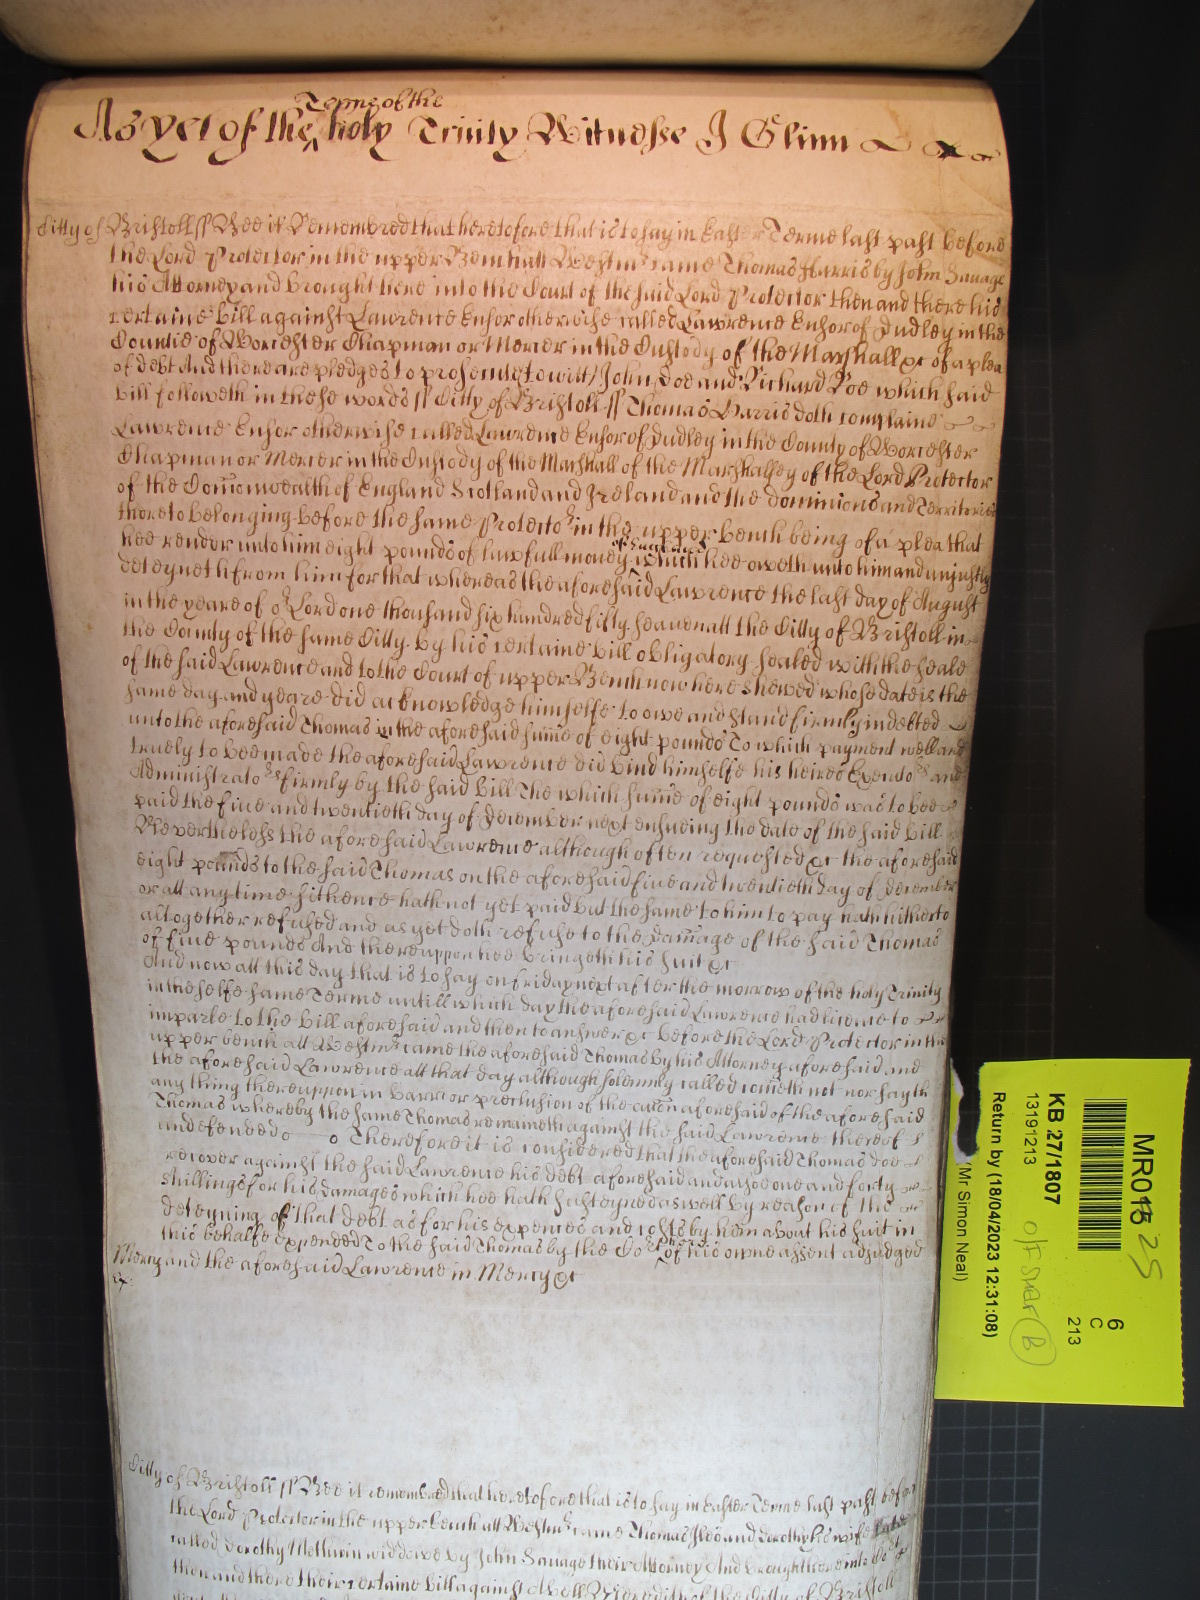 As yet of the ^Terme of the holy Trinity Witnesse J Glinn
Citty of Bristoll ss Bee it Remembred that heretofore that is to say in Easter Terme last past before
the Lord Protector in the upper Bench att Westmr came Thomas Harris by John Savage
his Attorney and brought here into the Court of the said Lord Protector then and there his
certaine bill against Lawrence Ensor otherwise called Lawrence Ensor of Dudley in the
Countie of Worcester Chapman or Mercer in the Custody of the Marshall &c of a plea
of debt And there are pledges to prosecute to witt John Doe and Richard Roe which said
bill followeth in these words ss Citty of Bristoll ss Thomas Harris doth complaine
Lawrence Ensor otherwise called Lawrence Ensor of Dudley in the County of Worcester
Chapman or Mercer in the Custody of the Marshall of the Marshallsey of the Lord Protector
of the Comonwealth of England Scotland and Ireland and the dominions and Territories
thereto belonging before the same Protector in the upper bench being of a plea that
hee render unto him eight pounds of lawfull money ^of England which hee oweth unto him and unjustly
deteyneth from him for that whereas the aforesaid Lawrence the last day of August
in the yeare of or Lord one thousand six hundred fifty seaven att the Citty of Bristoll in
the County of the same Citty by his certaine bill obligatory sealed with the seale
of the said Lawrence and to the Court of upper Bench now here shewed whose date is the
same day and yeare did acknowledge himselfe to owe and stand firmly indebted
unto the aforesaid Thomas in the aforesaid sume of eight pounds To which payment well and
truely to bee made the aforesaid Lawrence did bind himselfe his heires Executors and
Administrators firmly by the said bill The which sume of eight pounds was to bee
paid the five and twentieth day of December next ensueing the date of the said bill
Neverthelesse the aforesaid Lawrence although often requested &c the aforesaid
eight pounds to the said Thomas on the aforesaid five and twentieth day of December
or att any time sithence hath not yet paid but the same to him to pay hath hitherto
altogether refused and as yet doth refuse to the Damage of the said Thomas
of five pounds And thereuppon hee bringeth his suit &c
And now att this day that is to say on friday next after the morrow of the holy Trinity
in the selfe same Terme untill which day the aforesaid Lawrence had licence to
imparle to the bill aforesaid and then to answer &c before the Lord Protector in the
upper bench att Westmr came the aforesaid Thomas by his Attorney aforesaid and
the aforesaid Lawrence att that day although solemnly called cometh not nor sayth
any thing thereuppon in barr or preclusion of the accon aforesaid of the aforesaid
Thomas whereby the same Thomas remaineth against the said Lawrence thereof
undefended Therefore it is considered that the aforesaid Thomas doe
recover against the said Lawrence his debt aforesaid and alsoe one and forty
shillings for his damages which hee hath susteyned as well by reason of the
deteyning of that debt as for his expences and costs by him about his suit in
this behalfe expended To the said Thomas by the Cort ^here of his owne assent adjudged
Mercy and the aforesaid Lawrence in Mercy &c
Citty of Bristoll ss Bee it remembred that heretofore that is to say in Easter Terme last past before
the Lord Protector in the upper bench att Westmr came Thomas and Dorothy his wife late
called Dorothy widdowe by John Savage their Attorney And brought here into Cort
then and there their certaine bill against Abell Meredith of the Citty of Bristoll
MR01 25
6
C
213
KB 27/1807
13191213
Return by (18/04/2023 12:31:08)
(Mr Simon Neal)
B